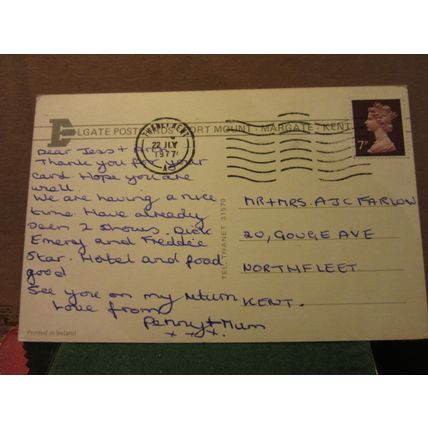 ELGATE POSTCARDS PORT MOUNT · MARGATE · KENT
THANET KENT
22 JLY
1977
7P
Dear Jess +
Thank you for your
card. Hope you are
well.
We are having a nice
time. Have already
seen 2 shows. Dick
Emery and Freddie
Star. Hotel and food
good
See you on my return
Love from
Penny + Mum
x x x.
TEL. THANET 31570
MR + MRS. A J C FARLOW
20, GOUGE AVE
NORTHFLEET
KENT.
Printed in Ireland